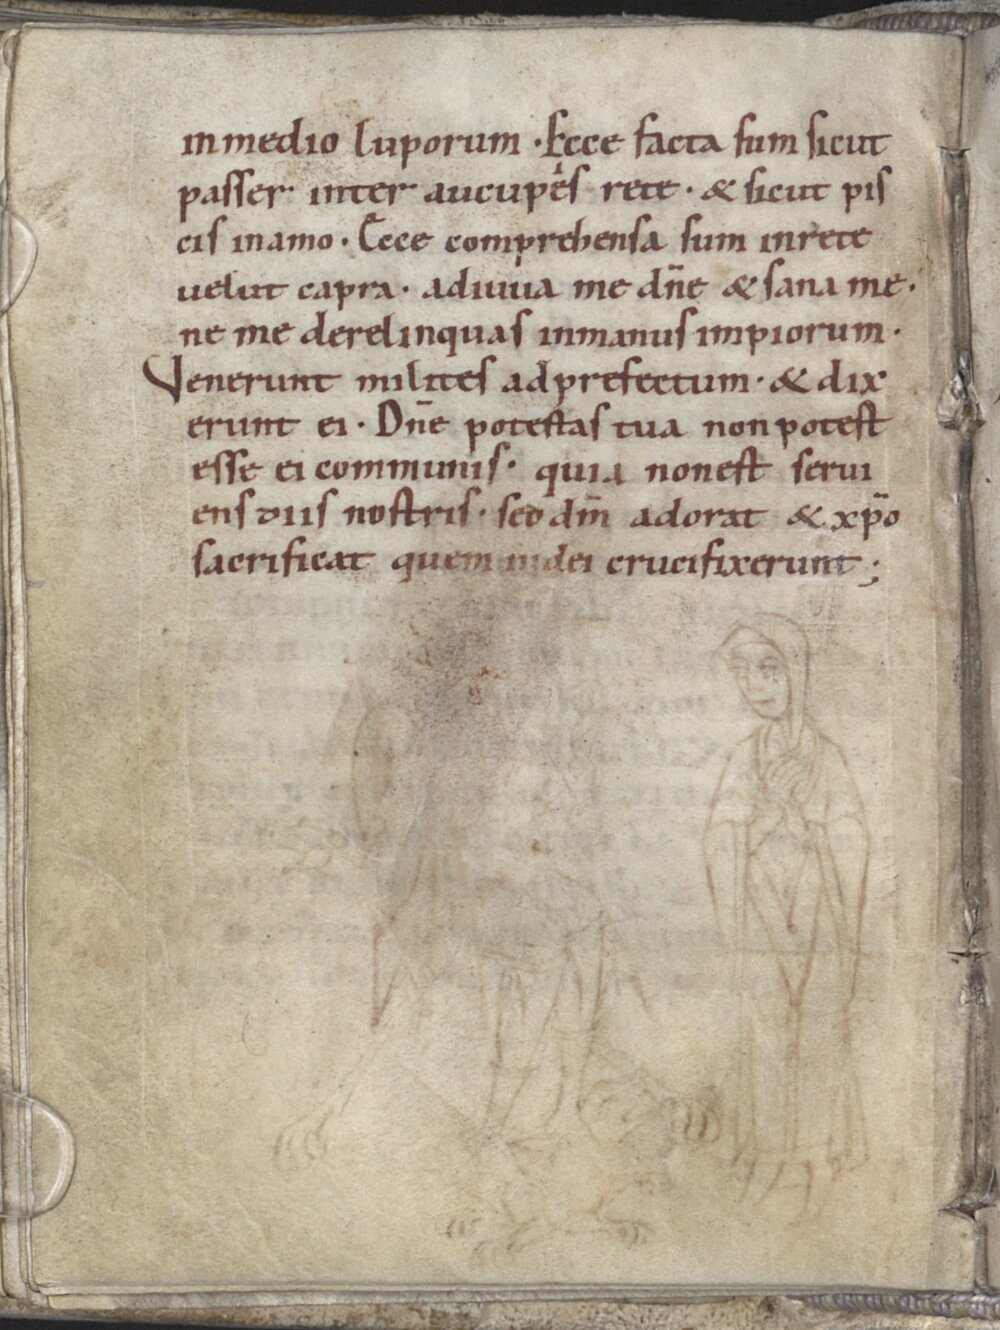 in medio luporum · Ecce facta sum sicut
passer inter aucupes rete · & sicut pis
cis in amo · Ecce comprehensa sum in rete
uelut capra · adiuua me dñe & sana me ·
ne me derelinquas in manus impiorum ·
Venerunt milites ad prefectum · & dix
erunt ei · Dñe potestas tua non potest
esse ei communis · quia non est serui
ens diis nostris · sed dm̄ adorat & xp̄o
sacrificat quem iudei crucifixerunt ;